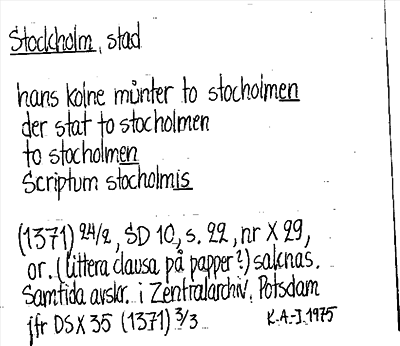 Stockholm, stad
hans kolne münter to stocholmen
der stat to stocholmen
to stocholmen
Scriptum stocholmis
(1371) 24/2, SD 10, s. 22, nr X 29,
or. (littera clausa på papper?) saknas.
Samtida avskr. i Zentralarchiv, Potsdam
jfr DS X 35 (1371) 3/3 K.-A.-J. 1975